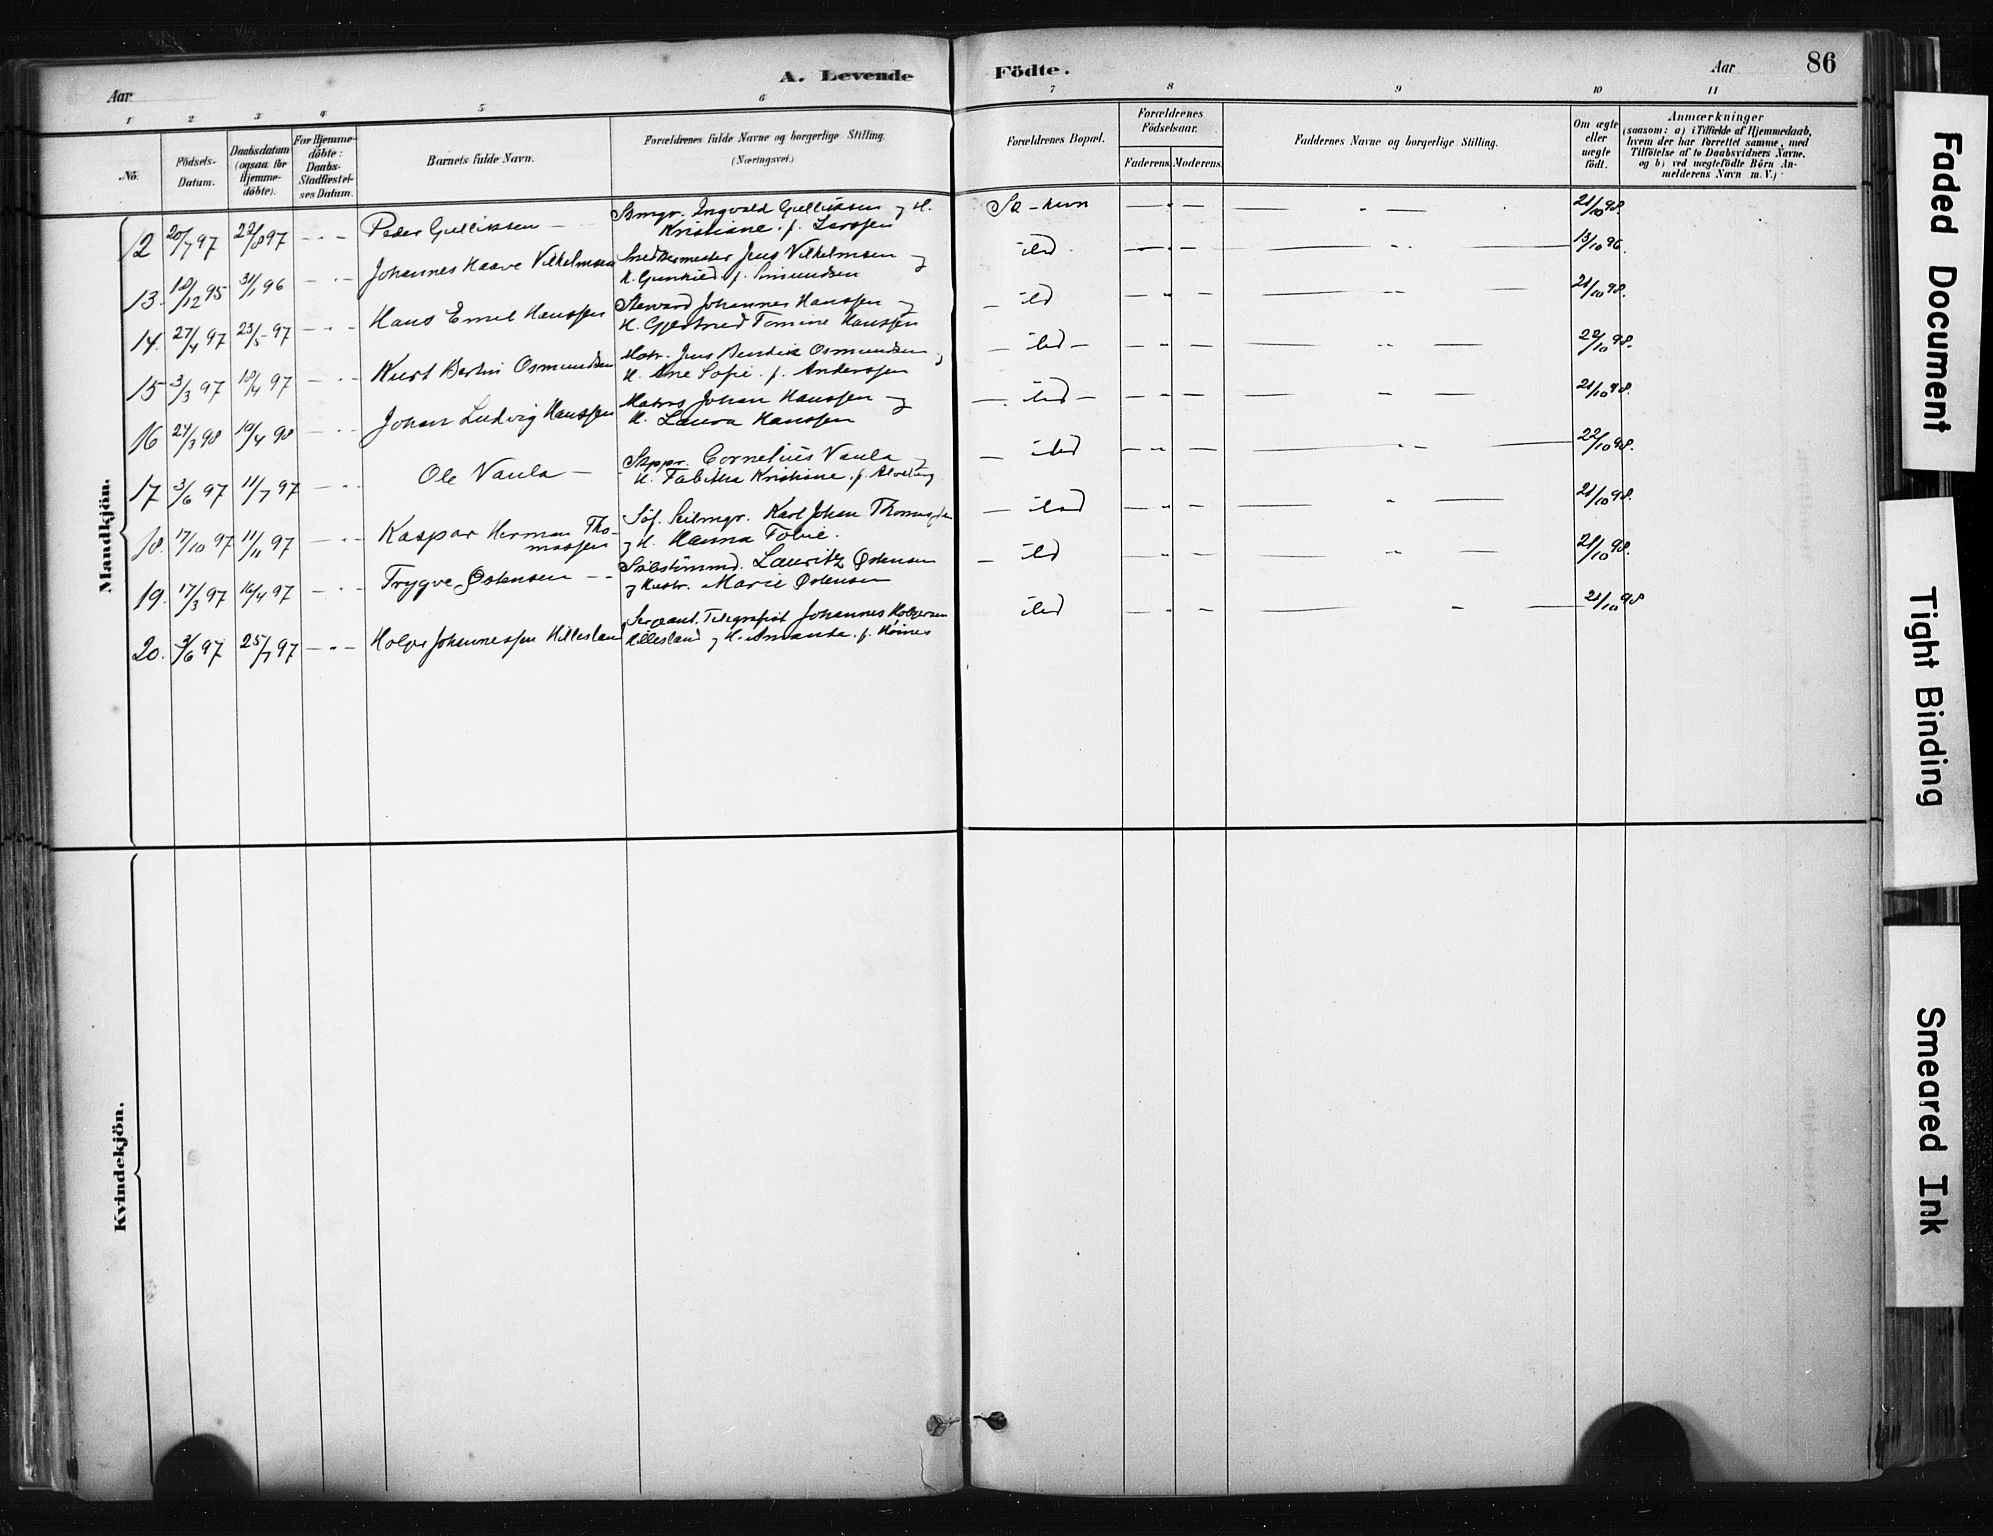 Aar
A. Levende
Födte.
Aar
86
1 2 3 4 5 6 7 8 9 10 11
No.
Födsels-Datum.
Daabsdatum (ogsaa for Hjemme-döbte).
For Hjemme-döbte: Daabs-Stadfæstel-ses Datum.
Barnets fulde Navn.
Forældrenes fulde Navne og borgerlige Stilling. (Næringsvei.)
Forældrenes Bopæl.
Forældrenes Födselsaar.
Faderens. Moderens.
Faddernes Navne og borgerlige Stilling.
Om ægte eller uægte födt.
Anmærkninger
(saasom: a) i Tilfælde af Hjemmedaab,
hvem der har forrettet samme, med
Tilföielse af to Daabsvidners Navne,
og b) ved uægtefödte Börn An-
melderens Navn m. V.)
Mandkjön.
12 20/7 97 22/8 97 - - - Peder Gulliksen — Bmgr. Ingvald Gulliksen og H. Sk-havn — - — 21/10 98.
Kristiane f. Larssen
13. 12/12 95 31/1 96 - - - Johannes Haave Vilhelmsen Snedkermester Jens Vilhelmsen og ibd — - — 13/10 96.
H. Gunhild f. Simundsen
14. 27/4 97 23/5 97 - - - Hans Emil Hanssen Steward Johannes Hanssen og — ibd — - — 21/10 98.
H. Gjertrud Tomine Hanssen
15 3/3 97 18/4 97 - - - Kurt Bertin Osmundsen Matr. Jens Bendik Osmundsen og — ibd — 22/10 98.
H. Ane Sofie f. Anderssen
16 24/3 98 10/4 98 - - - Johan Ludvig Hanssen Matros Johan Hanssen og — ibd — 21/10 98.
H. Laura Hanssen
17 3/6 97 11/7 97 - - - Ole Vaula — Skppr. Cornelius Vaula og — ibd — 22/10 98.
H. Tabitha Kristiane f.
18. 17/10 97 11/11 97 - - - Kaspar Herman Tho-massen Söf. Seilmgr. Karl Johan Thomassen — ibd — 21/10 98.
og H. Hanna Tobie.
19. 17/3 97 16/4 97 - - - Trygve Østensen - - Lauritz Østensen — ibd — 21/10 98.
og Hustr. Marie Østensen
20. 3/6 97 25/7 97 - - - Holger Johannessen Hillesland Sergeant, Telegrafist Johannes Holgersen ibd — 21/10 98
Hillesland og H. Amanda f. Höines
Kvindekjön.
Faded Document
Tight Binding
Smeared Ink